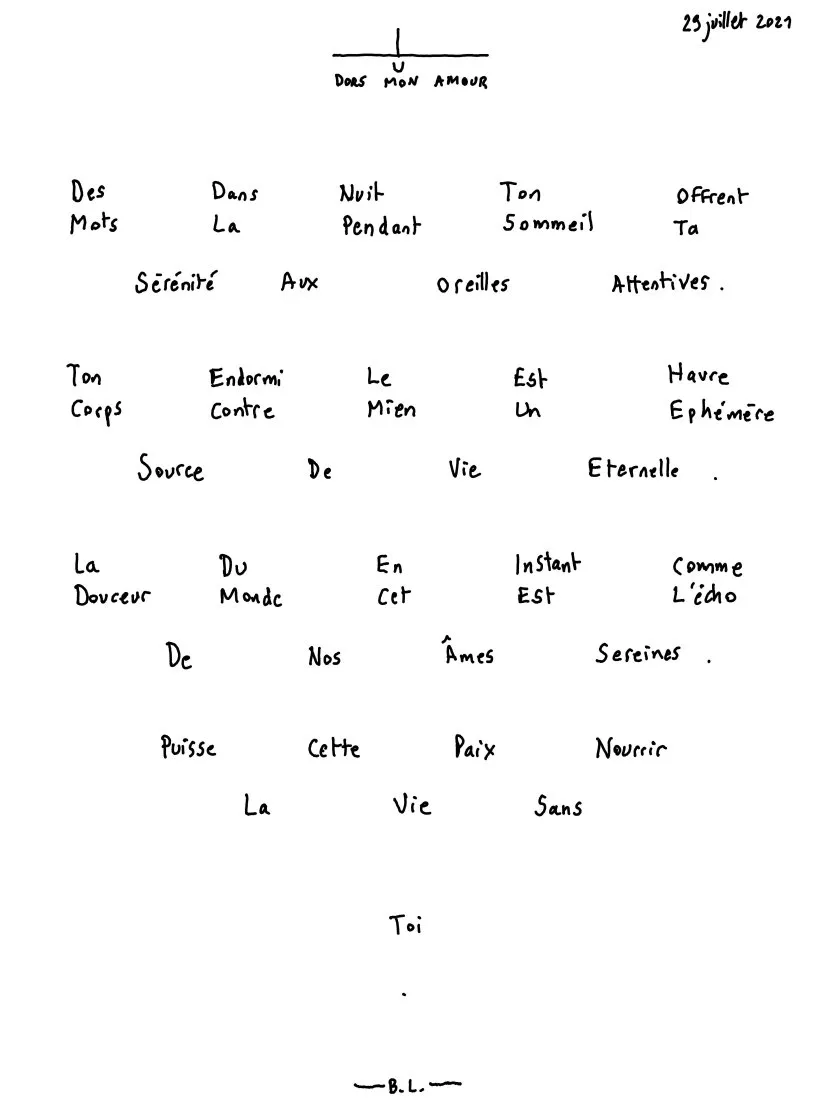 29 juillet 2021
DORS MON AMOUR
Des Dans Nuit Ton Offrent
Mots La Pendant Sommeil Ta
Sérénité Aux Oreilles Attentives .
Ton Endormi Le Est Havre
Corps Contre Mien Un Ephémère
Source De Vie Eternelle .
La Du En Instant Comme
Douceur Monde Cet Est L'écho
De Nos Âmes Sereines .
Puisse Cette Paix Nourrir
La Vie Sans
Toi
.
—B.L.—